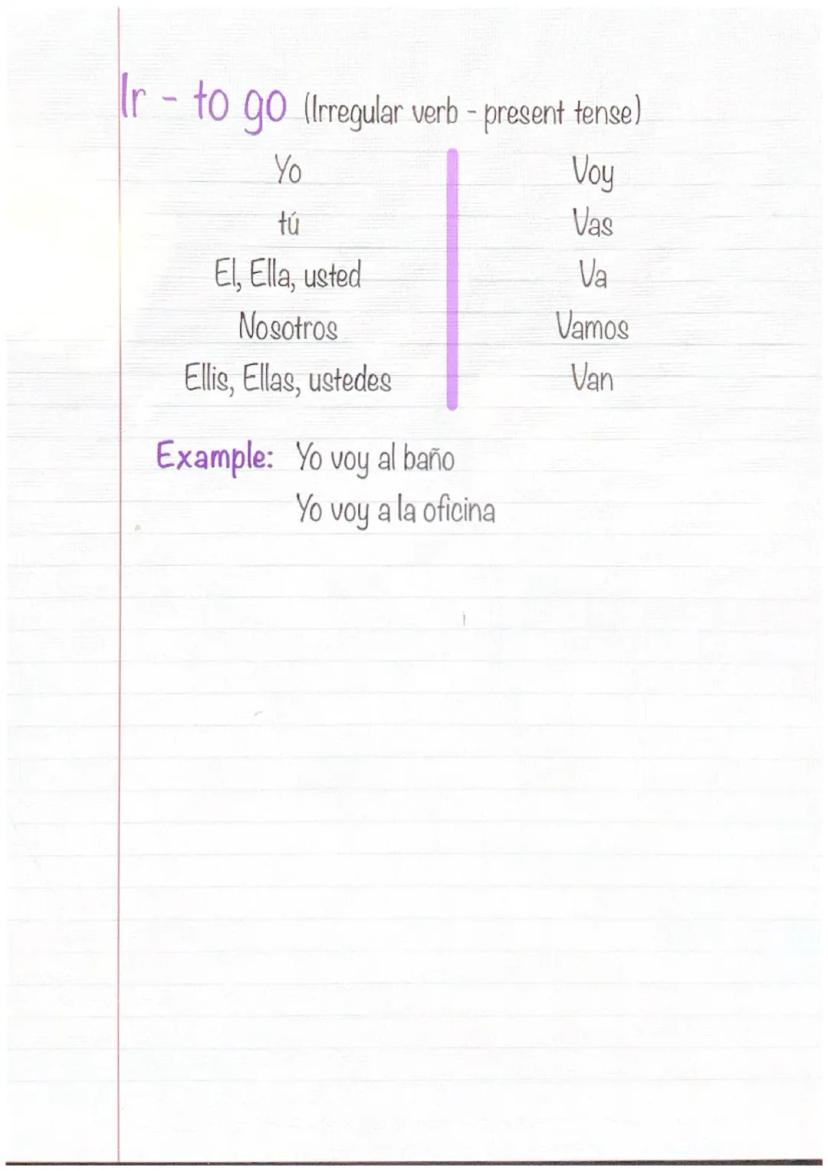 Ir - to go (Irregular verb - present tense)
Yo Voy
tú Vas
El, Ella, usted Va
Nosotros Vamos
Ellis, Ellas, ustedes Van
Example: Yo voy al baño
Yo voy a la oficina